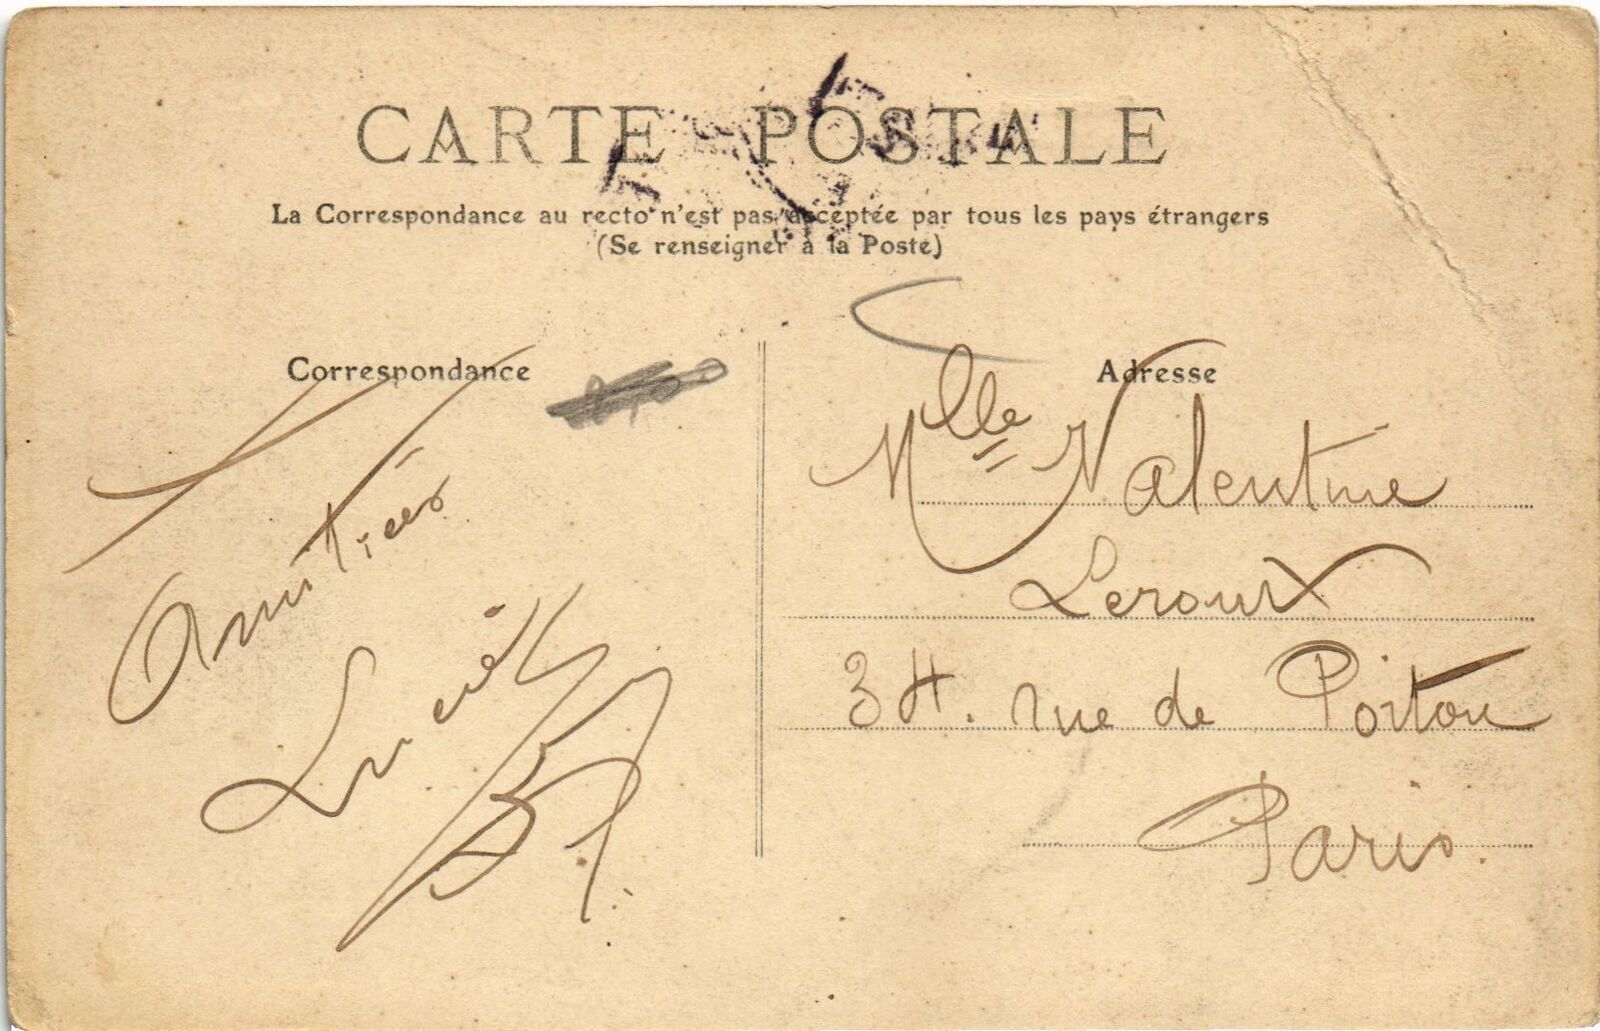 CARTE POSTALE
La Correspondance au recto n'est pas acceptée par tous les pays étrangers
(Se renseigner à la Poste)
Correspondance
Amitiés
Adresse
Mlle Valentine
Leroux
34. rue de Poitou
Paris.